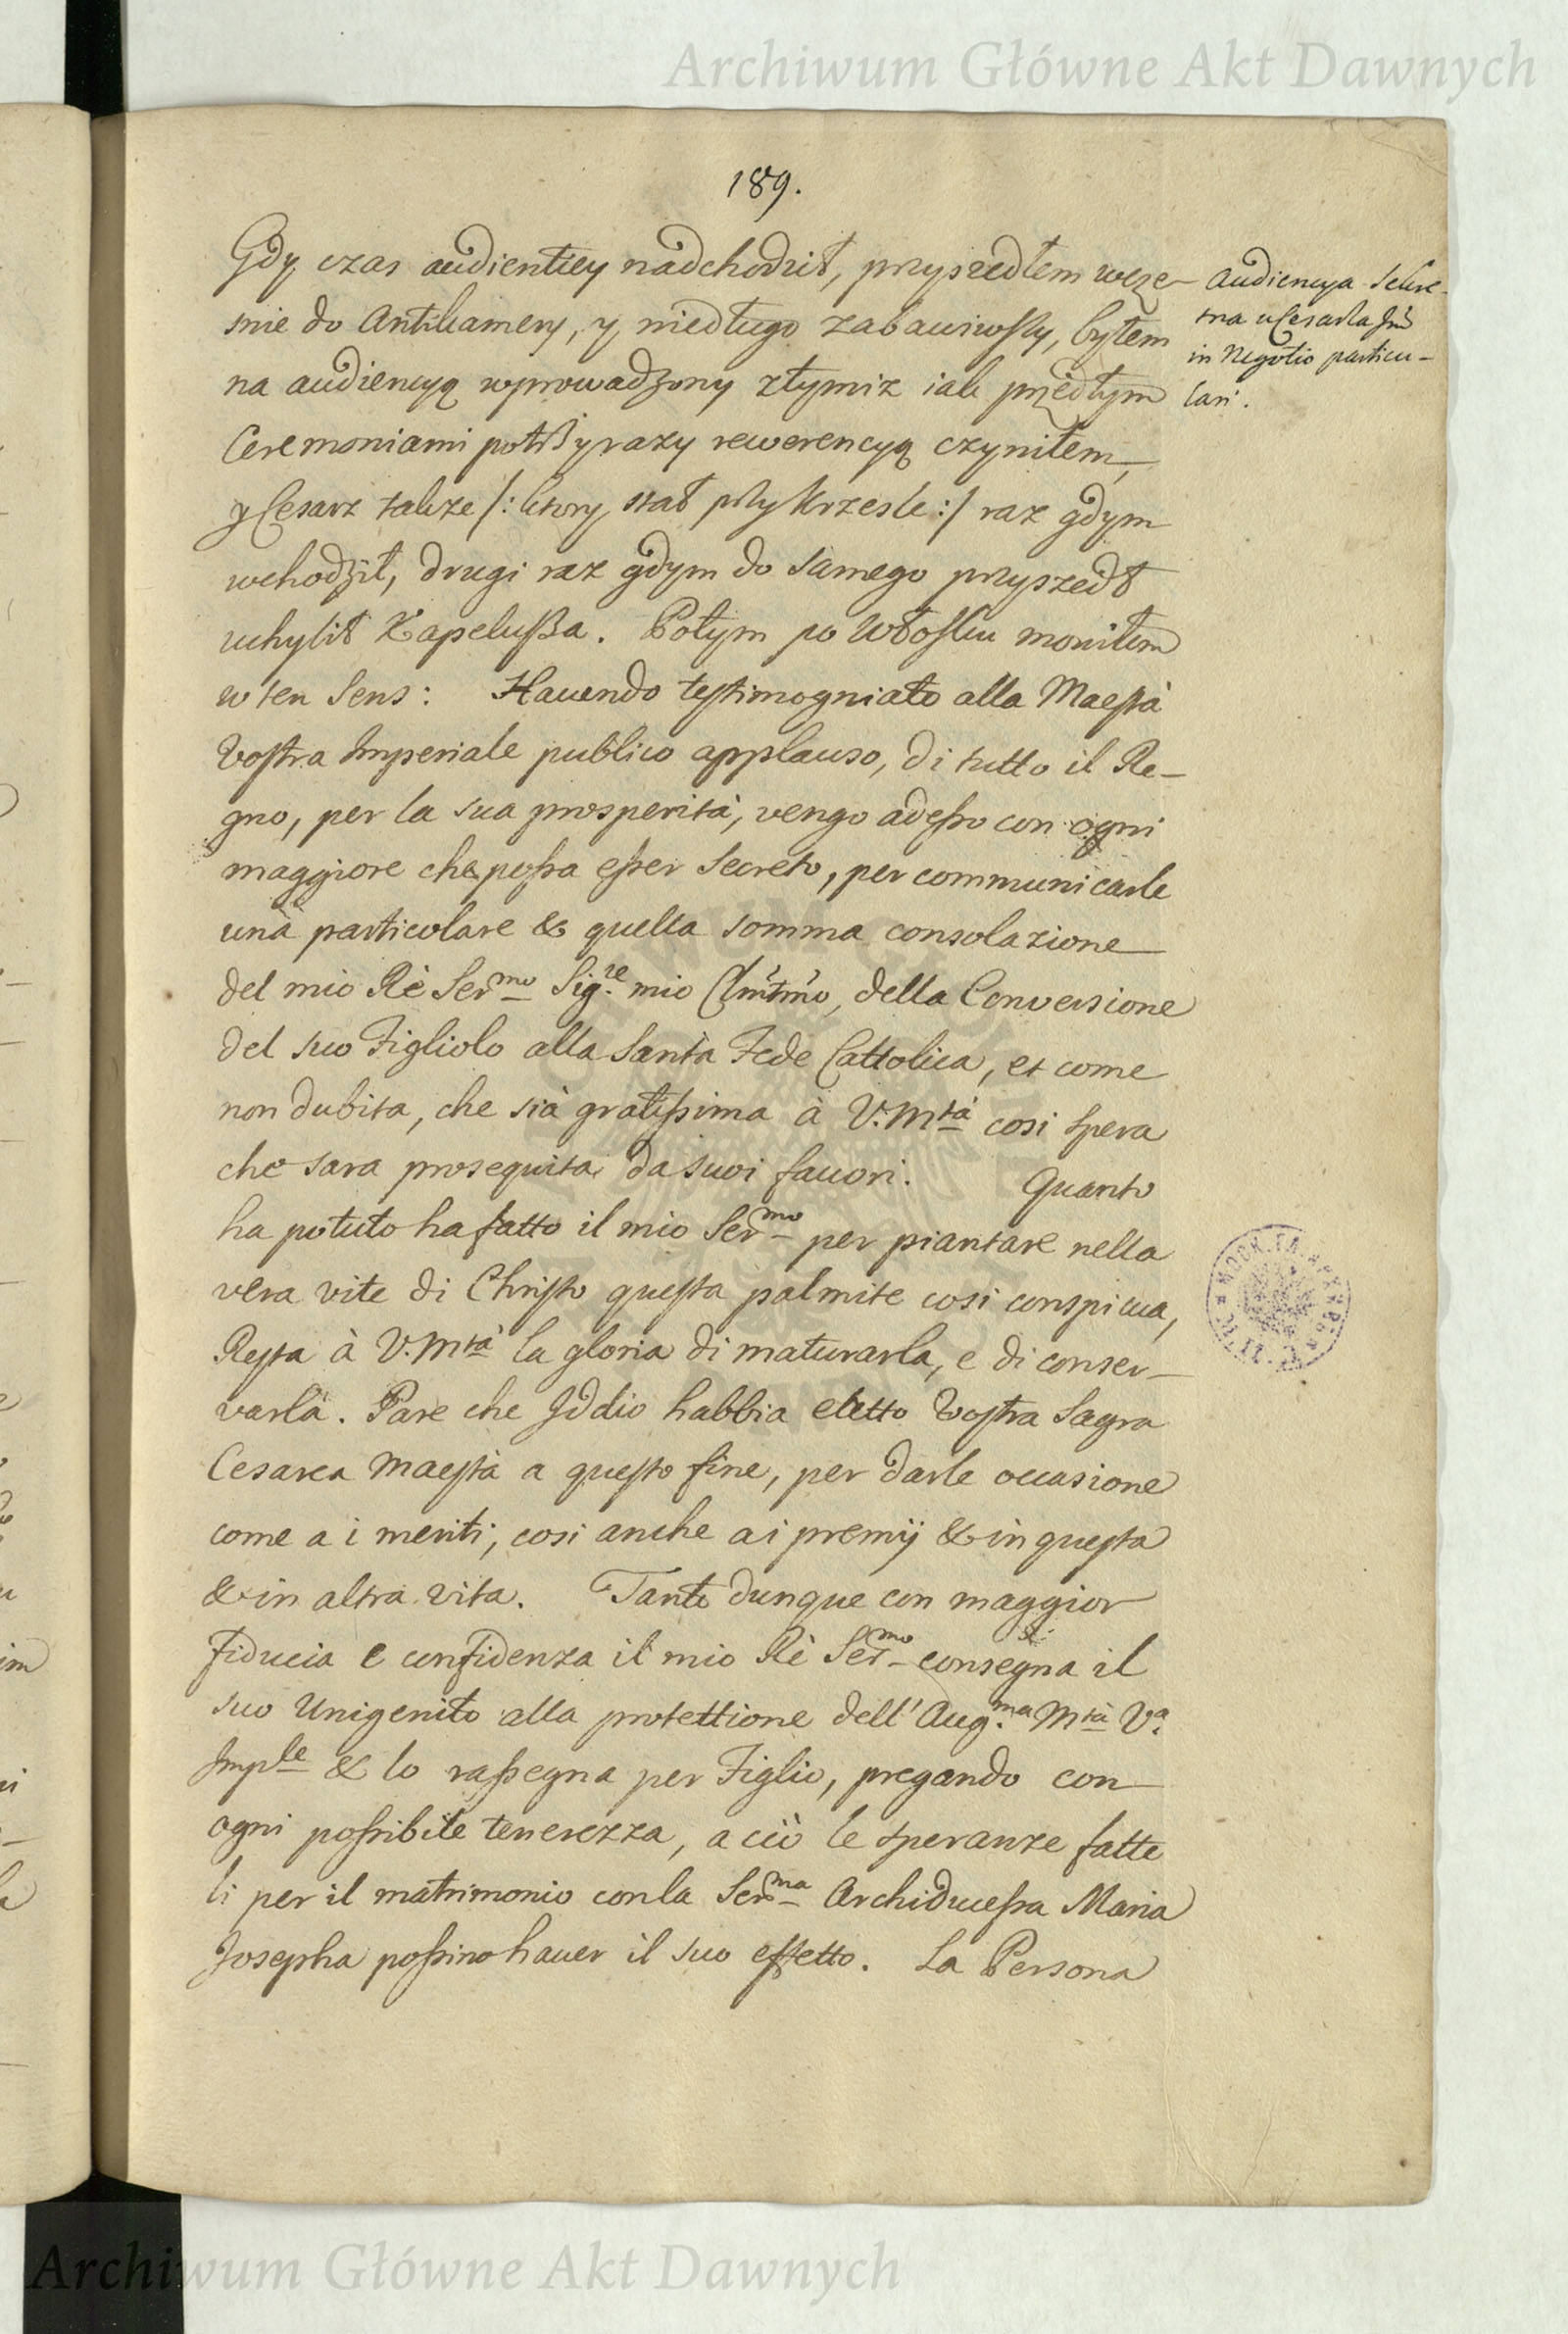 Archiwum Główne Akt Dawnych
189.
Gdy czas audientiey nadchodził, przyszedłem wcze-
snie do Antikamery, y niedługo zabawiwszy, byłem
na audiencyą wprowadzony z tymiz iak przedtym
Ceremoniami po trzy razy rewerencyą czyniłem,
y Cesarz takze /: ktory stał przy Krzesle :/ raz gdym
wchodził, drugi raz gdym do samego przyszedł
uchylił Kapelusza. Potym po Włosku moniłem
w ten Sens: Hauendo testimogniato alla Maestà
Vostra Imperiale publico applauso, di tutto il Re-
gno, per la sua prosperità, vengo adesso con ogni
maggiore che possa esser Secreto, per communicarle
unà particolare & quella somma consolazione
del mio Rè Ser.mo Sig.re mio, della Conversione
del suo Figliolo alla Santa Fede Cattolica, et come
non dubita, che sià gratissima à V. Mtà cosi spera
che sara prosequita da suoi fauori. Quanto
ha potuto ha fatto il mio Ser.mo per piantare nella
vera vite di Christo questa palmite cosi conspicua,
Resta à V. Mtà la gloria di maturarla, e di conser-
varla. Pare che Iddio habbia eletto Vostra Sagra
Cesarea Maestà a questo fine, per darle occasione
come a i meriti, cosi anche ai premij & in questa
& in altra vita. Tanto dunque con maggior
fiducia e confidenza il mio Rè Ser.mo consegna il
suo Unigenito alla protettione dell' Aug.ma Mtà V.a
Imp.le & lo rassegna per Figlio, pregando con
ogni possibile tenerezza, a ciò le speranze fatte
li per il matrimonio con la Ser.ma Archiducessa Maria
Josepha possino hauer il suo effetto. La Persona
Audiencya Sekre-
tna u Cesarza Jmci
in Negotio particu-
lari.
Archiwum Główne Akt Dawnych